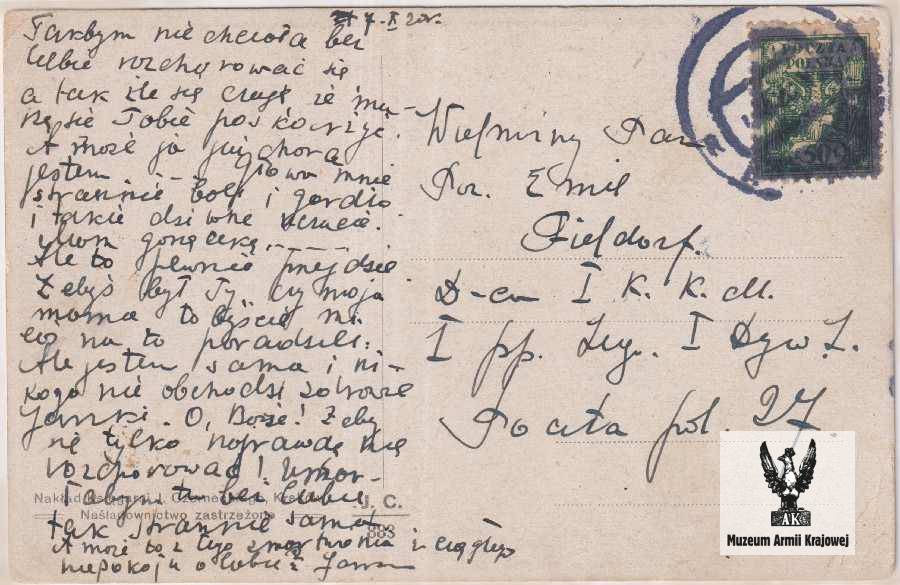 7. X 20r.
Takbym nie chciała bez
Ciebie rozchorować się
a tak źle się czuję że mu-
szę się Tobie poskarżyć.
A może ja już chora
jestem. . . . Głowa mnie
strasznie boli i gardło
i takie dziwne uczucie.
Mam gorączkę. . . . .
Ale to pewnie przejdzie
Żebyś był Ty, czy moja
mama to byście mi
coś na to poradzili.
Ale jestem sama i ni-
kogo nie obchodzi zdrowie
Janki. O, Boże! Żeby
się tylko naprawdę nie
rozchorować! Umar-
łabym tu bez Ciebie
tak strasznie sama
A może to z tego zmartwienia i ciągłego
niepokoju o Ciebie Janka
Wielmożny Pan
Por. Emil
Fieldorf.
D-ca I K. K. M.
I pp. Leg. I Dyw. L.
Poczta pol. 27.
POCZTA
POLSKA
Nakład Księgarni J. Czerneckiego, Kraków
Naśladownictwo zastrzeżone
J. C.
883
AK
Muzeum Armii Krajowej